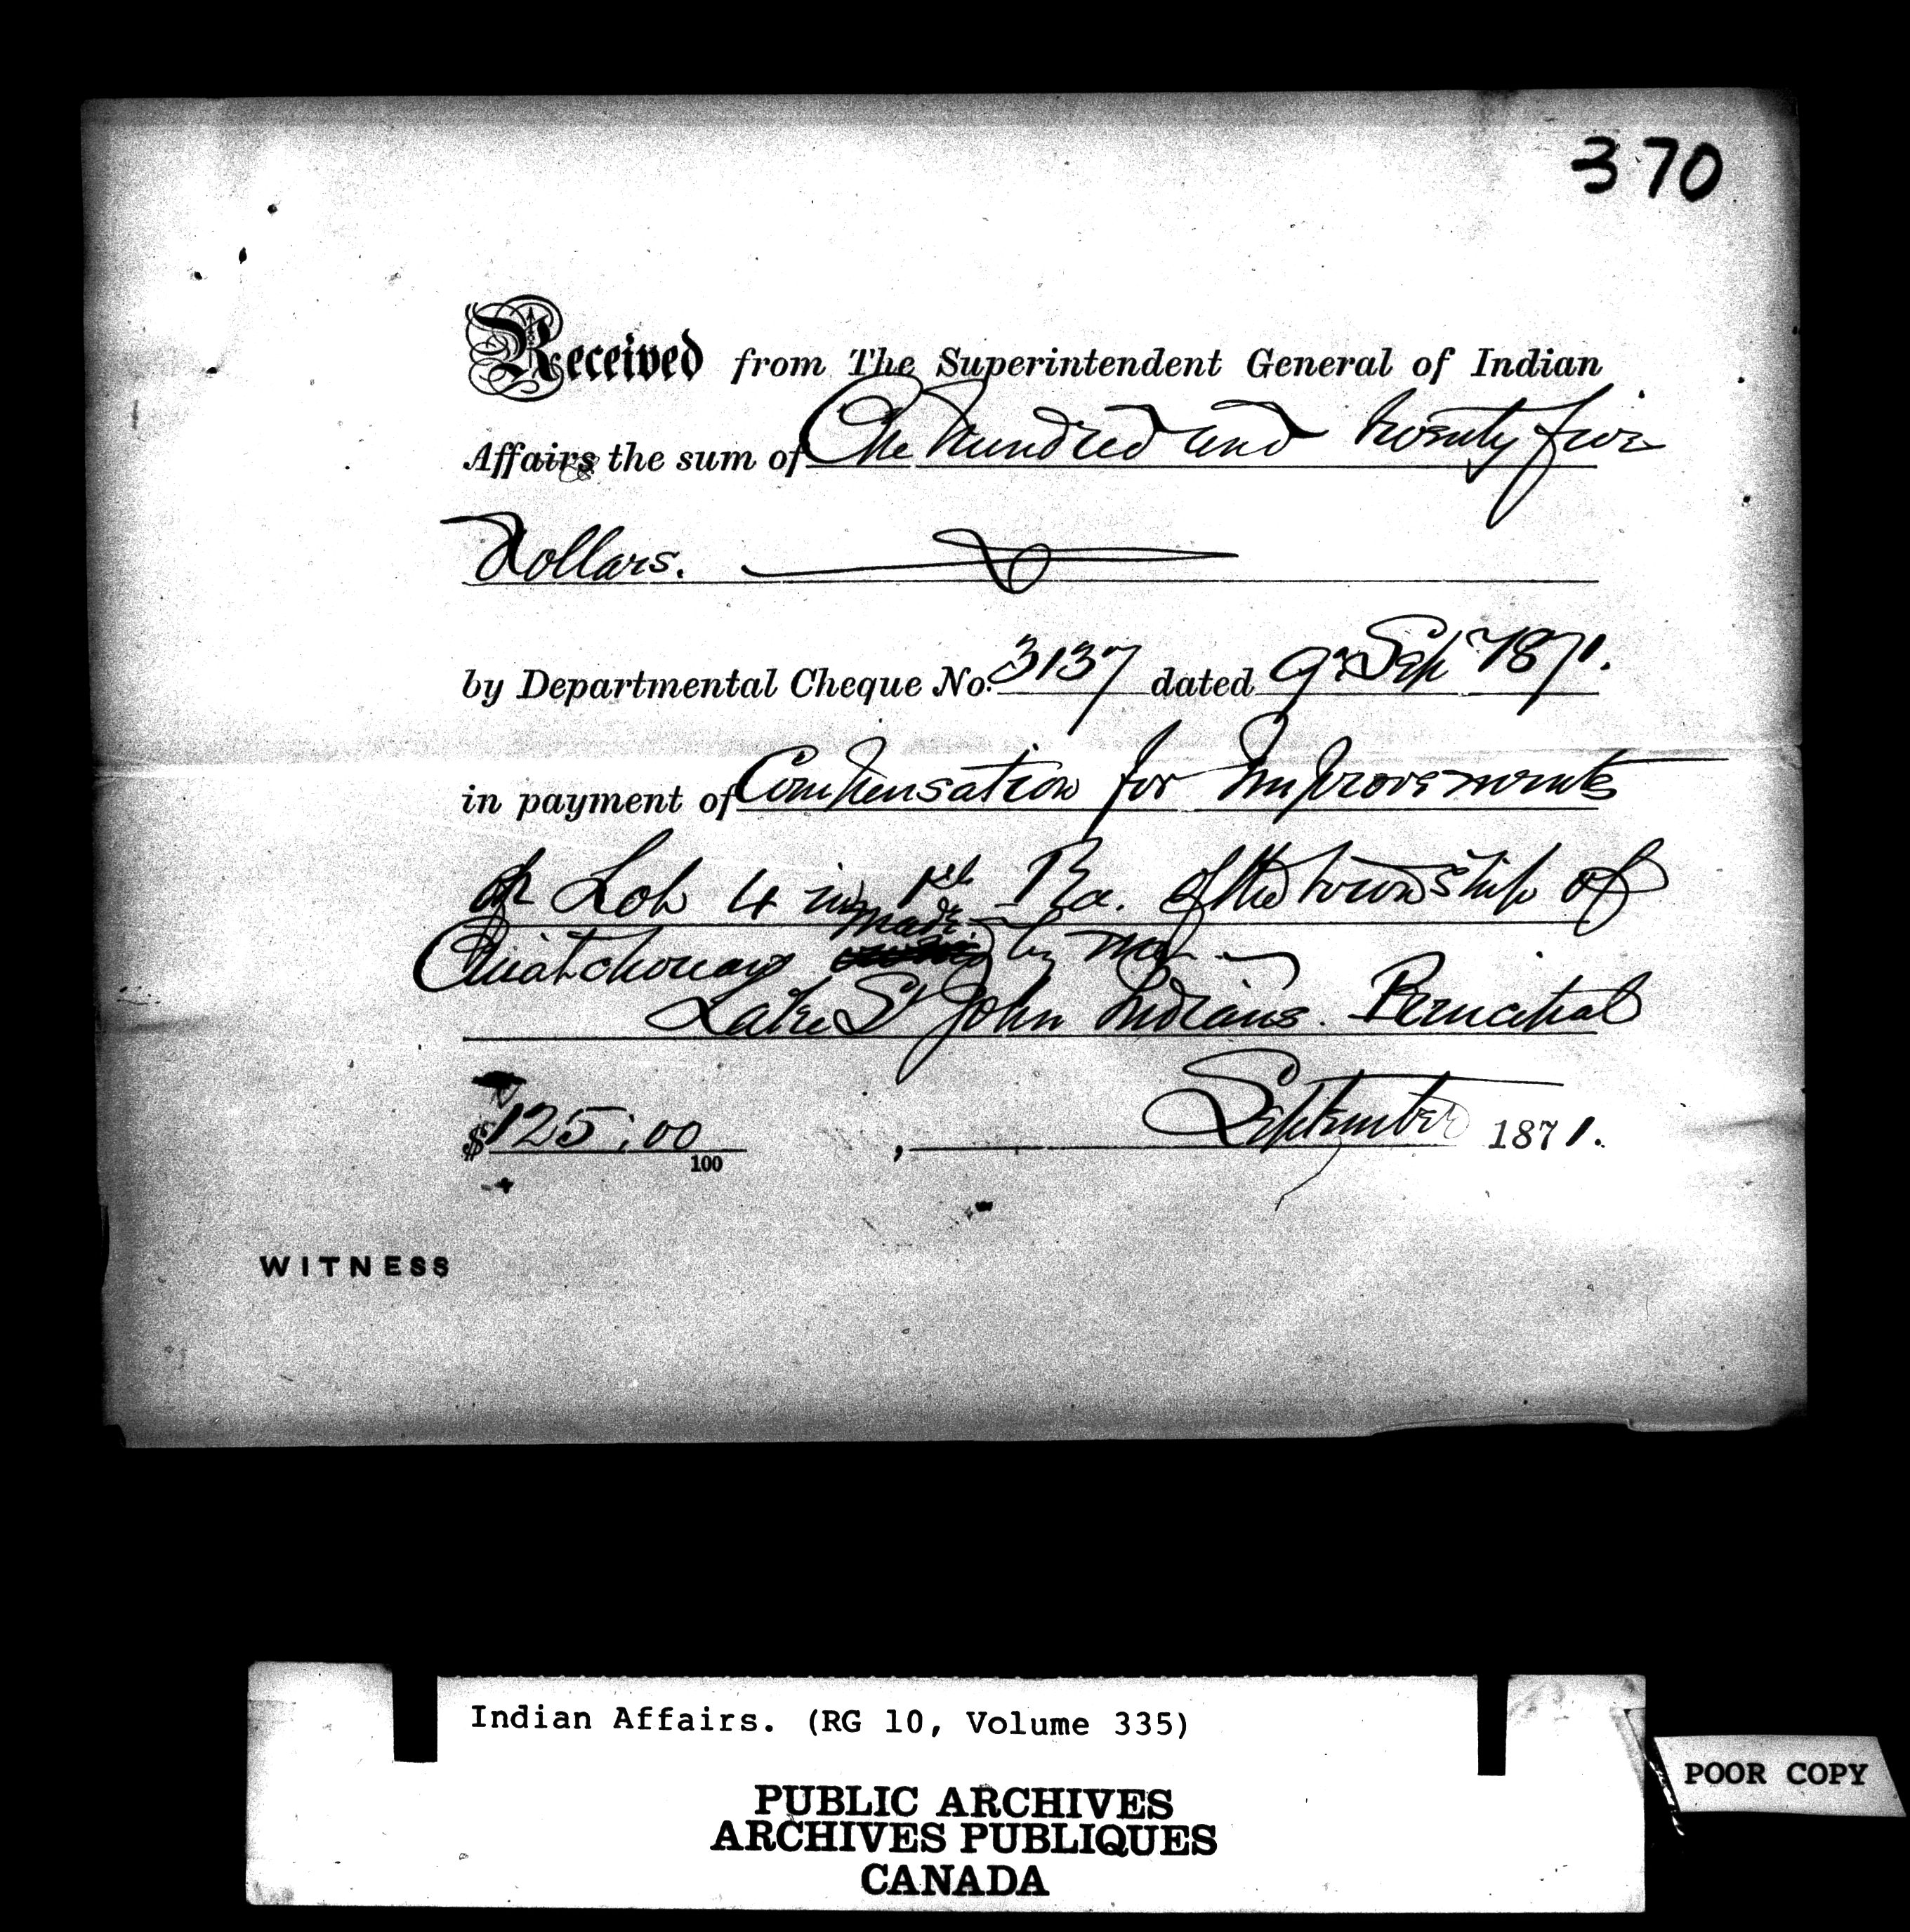 370
Received from The Superintendent General of Indian
Affairs the sum of One hundred and twenty five
Dollars.
by Departmental Cheque No. 3137 dated 9th Sep 1871.
in payment of Compensation for Improvements
on Lot 4 in 1st Ra. of the township of
Ouiatchouan made by me
Lake St John Indians.
$125.00/100 , September 1871.
WITNESS
Indian Affairs. (RG 10, Volume 335)
PUBLIC ARCHIVES
ARCHIVES PUBLIQUES
CANADA
POOR COPY